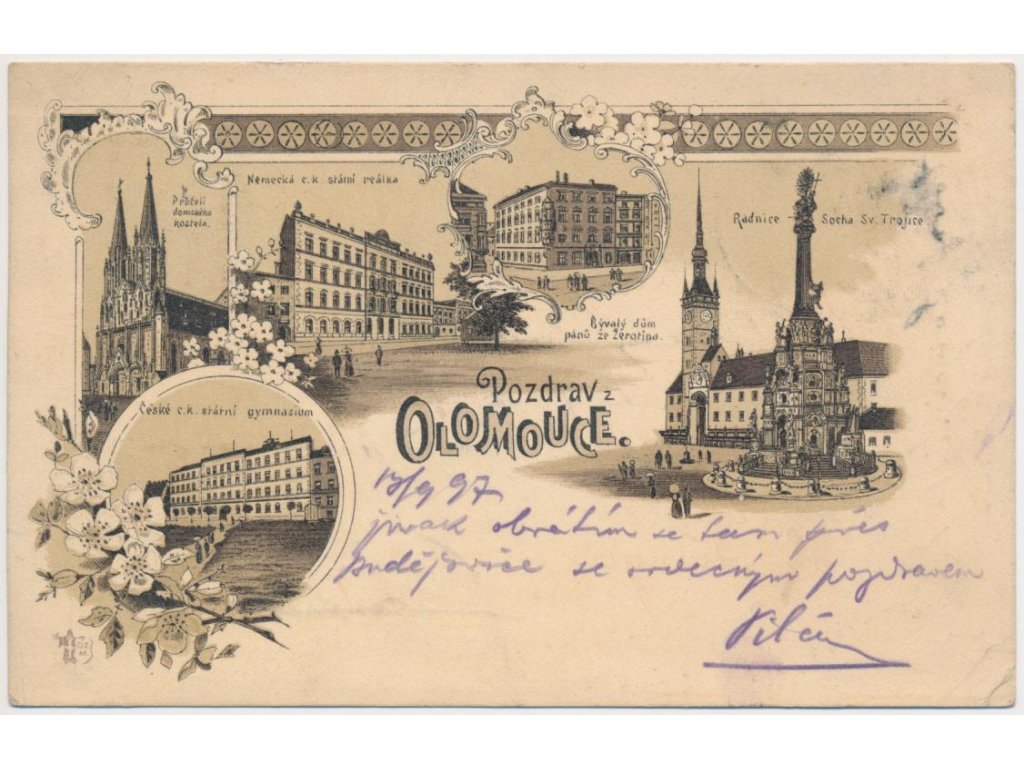 Průčelí
domského
kostela.
Německá c.k. státní reálka
Bývalý dům
pánů ze Žerotína.
Radnice Socha Sv. Trojice
České c.k. státní gymnasium
Pozdrav z
OLOMOUCE.
9 97
obrátím se tam přes
Budějovice se srdečným pozdravem